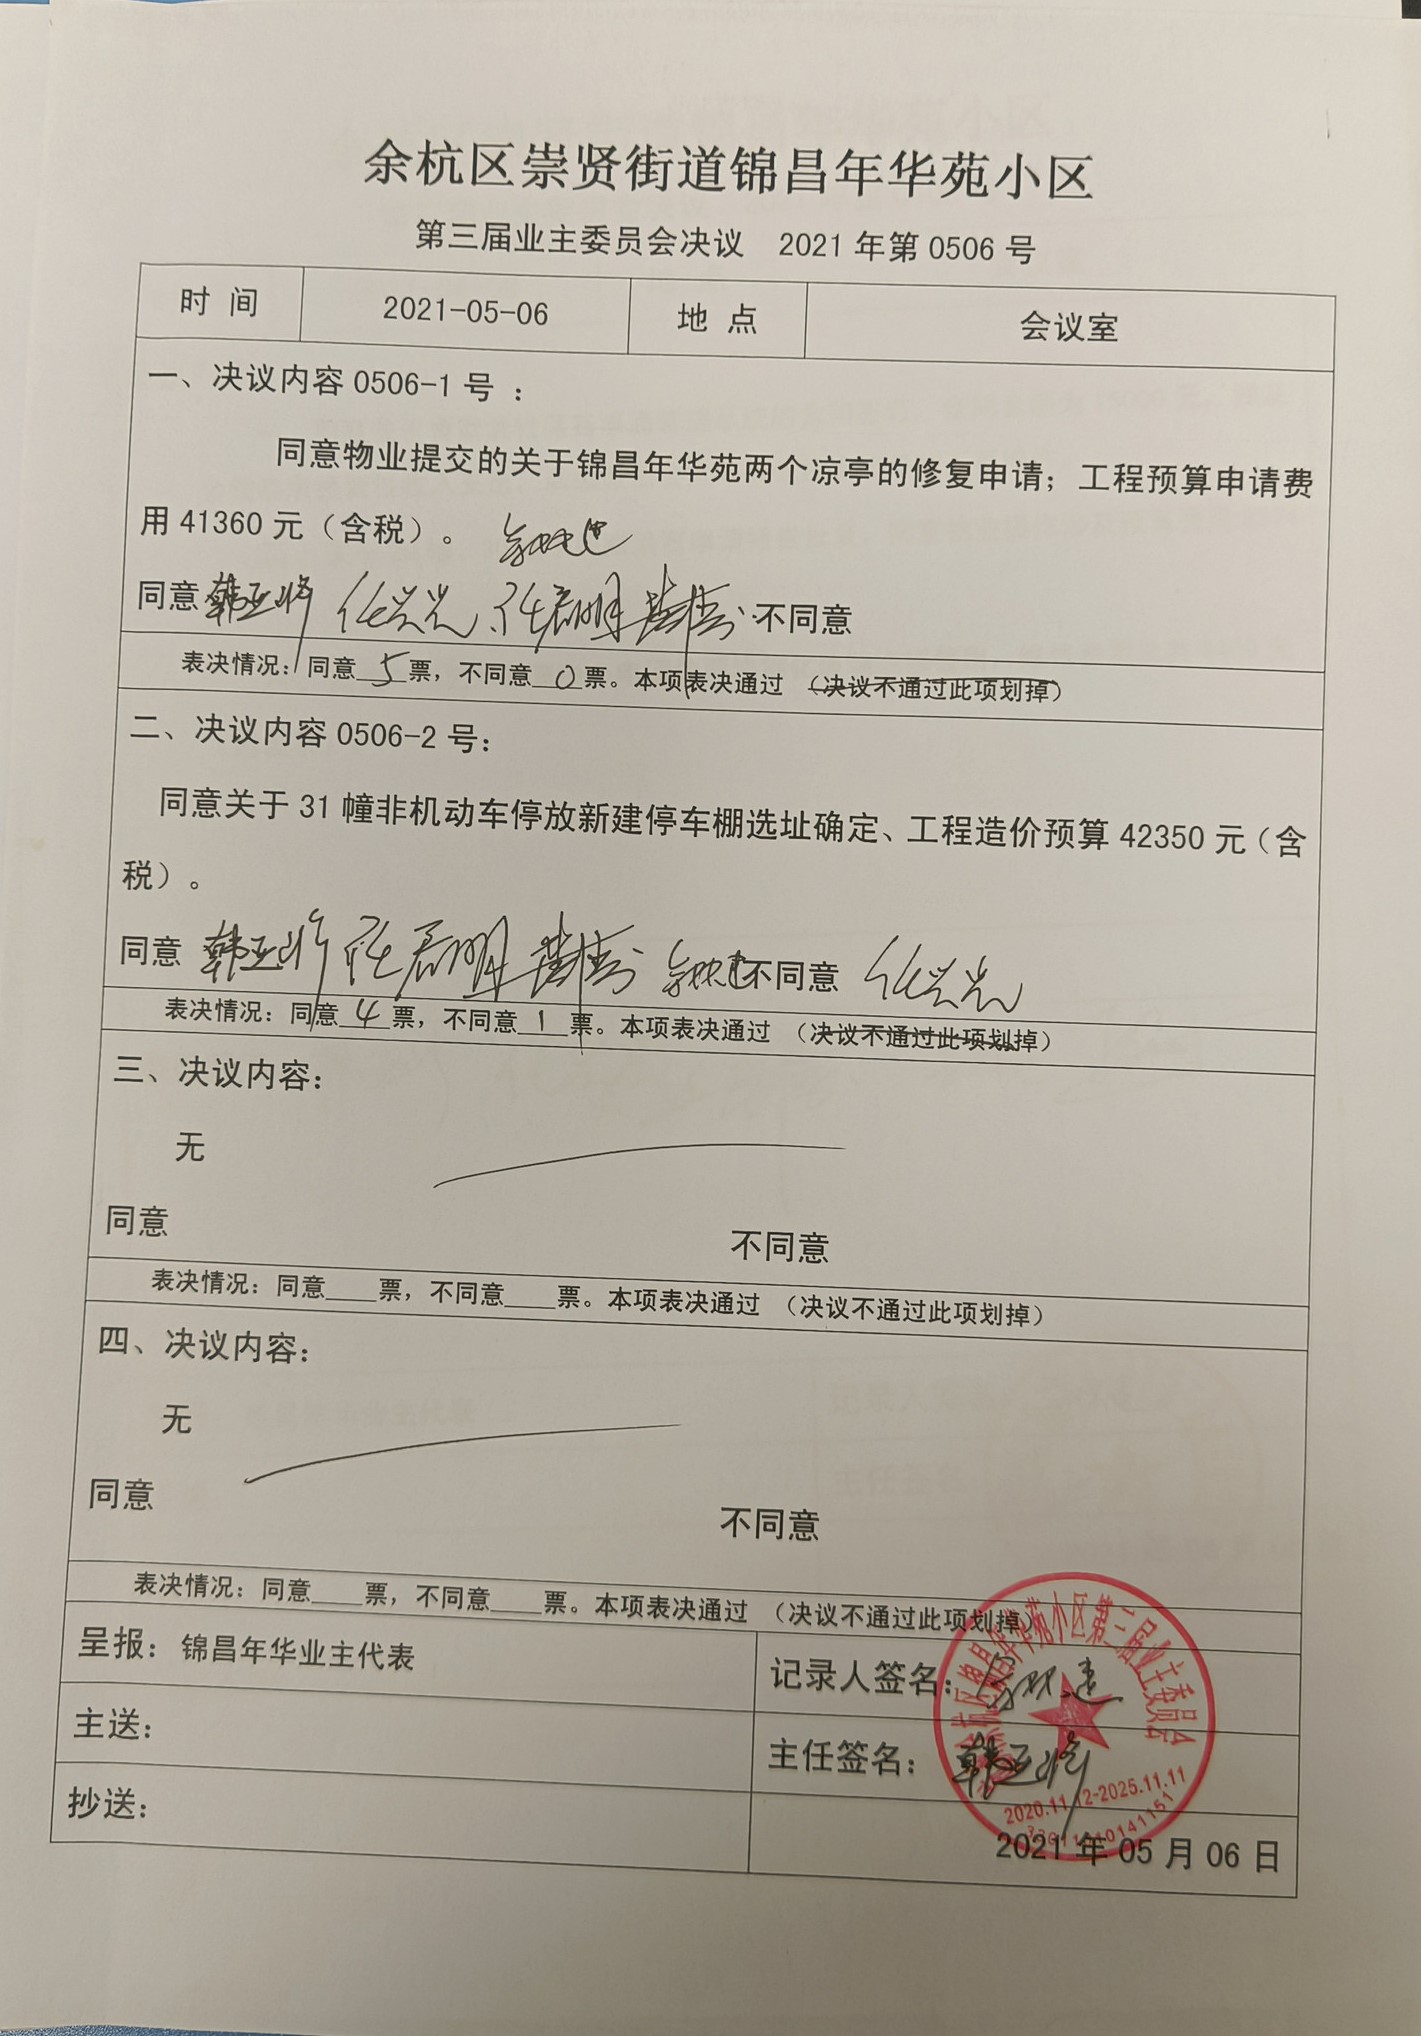 余杭区崇贤街道锦昌年华苑小区
第三届业主委员会决议 2021年第0506号
时 间 2021-05-06 地 点 会议室
一、决议内容0506-1号：
同意物业提交的关于锦昌年华苑两个凉亭的修复申请；工程预算申请费
用41360元（含税）。
同意 韩亚峰 任兴兴 不同意
表决情况：同意 5 票，不同意 0 票。本项表决通过 （决议不通过此项划掉）
二、决议内容0506-2号：
同意关于31幢非机动车停放新建停车棚选址确定、工程造价预算42350元（含
税）。
同意 韩亚峰 不同意 任兴兴
表决情况：同意 4 票，不同意 1 票。本项表决通过 （决议不通过此项划掉）
三、决议内容：
无
同意 不同意
表决情况：同意____票，不同意____票。本项表决通过 （决议不通过此项划掉）
四、决议内容：
无
同意 不同意
表决情况：同意____票，不同意____票。本项表决通过 （决议不通过此项划掉）
呈报：锦昌年华业主代表 记录人签名：
主送： 主任签名：韩亚峰
抄送：
2020.11.12-2025.11.11
2021年05月06日